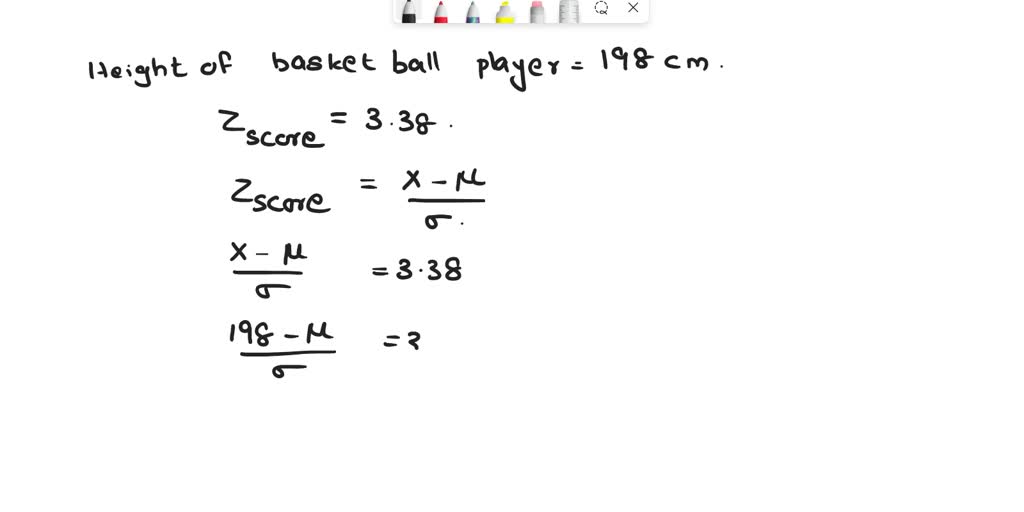 Height of basket ball player = 198 cm.
Z score = 3.38.
Z score = x - μ / σ.
x - μ / σ = 3.38
198 - μ / σ = 3